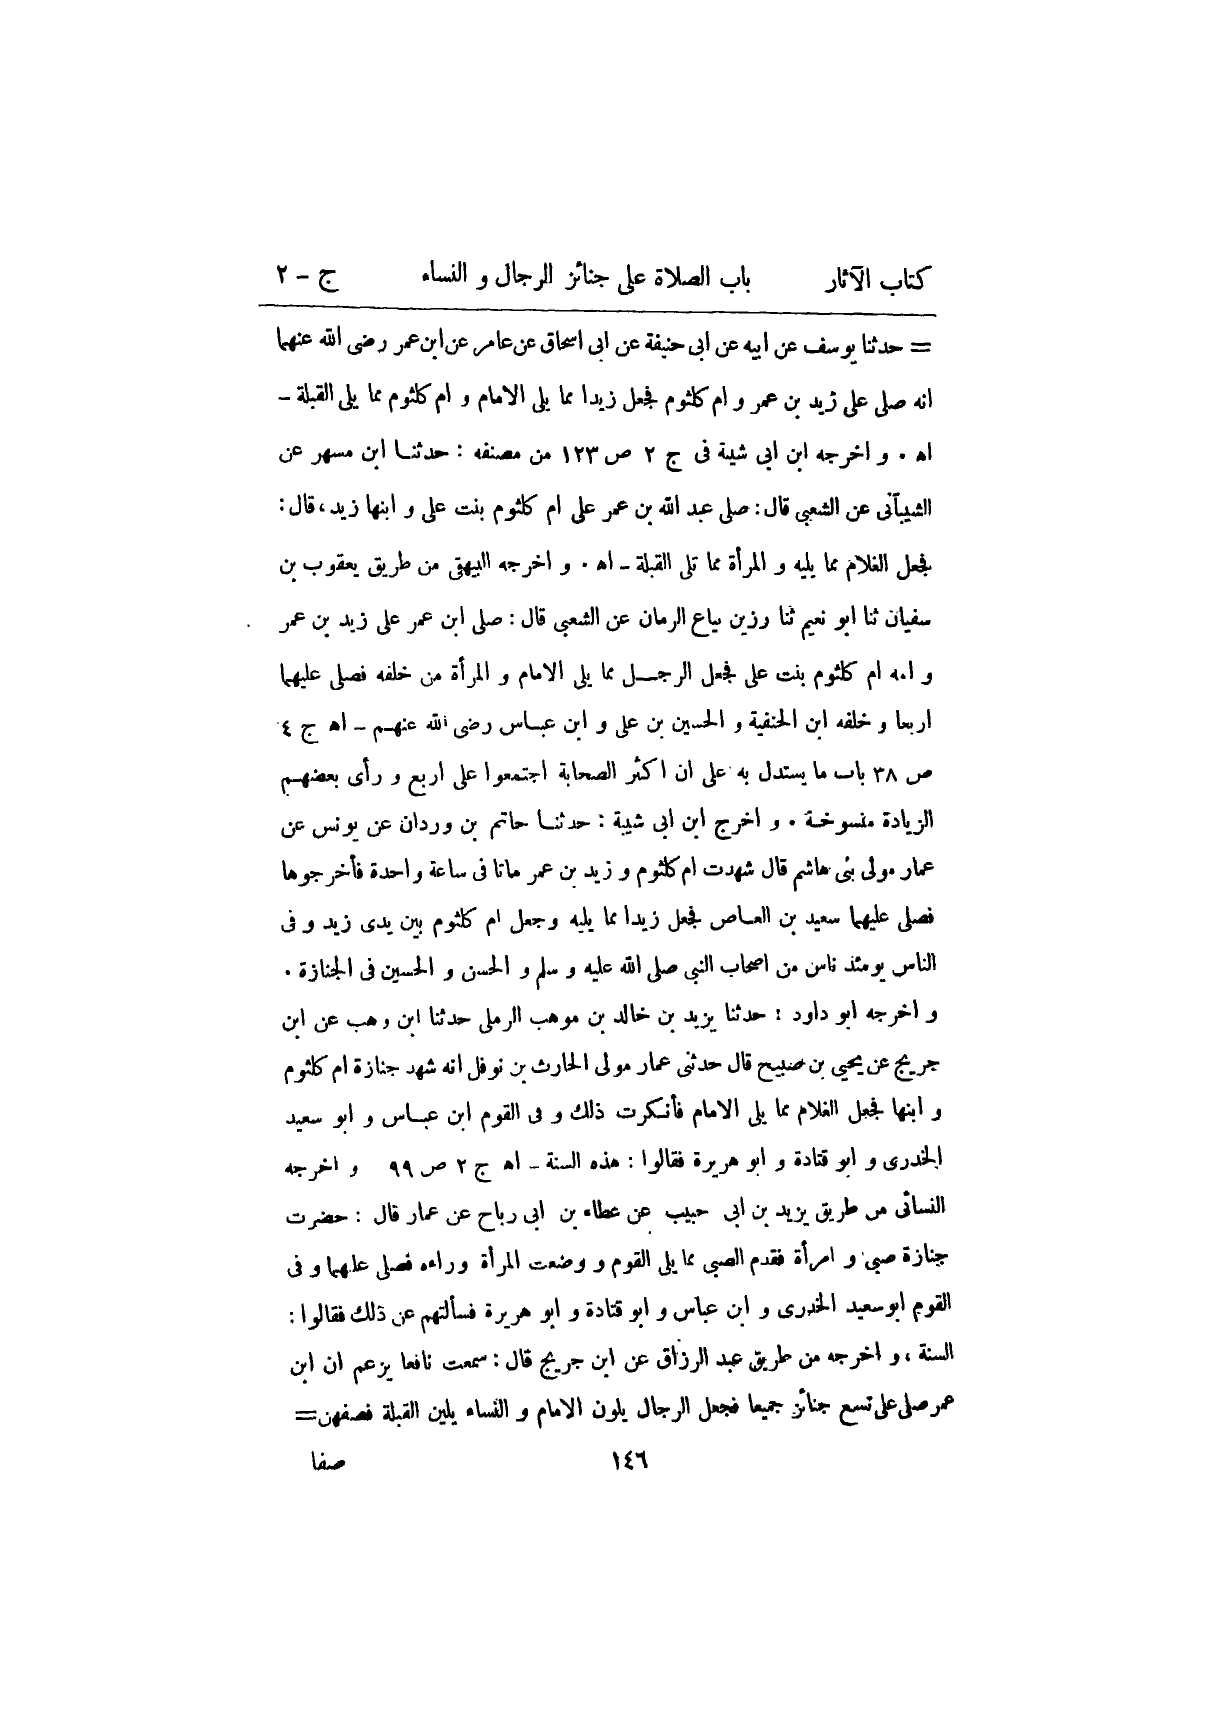 كتاب الآثار باب الصلاة على جنائز الرجال و النساء ج - ٢
= حدثنا يوسف عن ابيه عن ابى حنيفة عن ابى اسحاق عن عامر عن ابن عمر رضى الله عنهما
انه صلى على زيد بن عمر و ام كلثوم فجعل زيدا مما يلى الامام و ام كلثوم مما يلى القبلة -
اه ٠ و اخرجه ابن ابى شيبة فى ج ٢ ص ١٢٣ من مصنفه : حدثنا ابن مسهر عن
الشيبانى عن الشعبى قال : صلى عبد الله بن عمر على ام كلثوم بنت على و ابنها زيد ، قال :
فجعل الغلام مما يليه و المرأة مما تلى القبلة - اه ٠ و اخرجه البيهقى من طريق يعقوب بن
سفيان ثنا ابو نعيم ثنا رزين بياع الرمان عن الشعبى قال : صلى ابن عمر على زيد بن عمر
و امه ام كلثوم بنت على فجعل الرجل مما يلى الامام و المرأة من خلفه فصلى عليهما
اربعا و خلفه ابن الحنفية و الحسين بن على و ابن عباس رضى الله عنهم - اه ج ٤
ص ٣٨ باب ما يستدل به على ان اكثر الصحابة اجتمعوا على اربع و رأى بعضهم
الزيادة منسوخة ٠ و اخرج ابن ابى شيبة : حدثنا حاتم بن وردان عن يونس عن
عمار مولى بنى هاشم قال شهدت ام كلثوم و زيد بن عمر ماتا فى ساعة واحدة فأخرجوها
فصلى عليهما سعيد بن العاص فجعل زيدا مما يليه وجعل ام كلثوم بين يدى زيد و فى
الناس يومئذ ناس من اصحاب النبى صلى الله عليه و سلم و الحسن و الحسين فى الجنازة ٠
و اخرجه ابو داود : حدثنا يزيد بن خالد بن موهب الرملى حدثنا ابن وهب عن ابن
جريج عن يحيى بن صبيح قال حدثنى عمار مولى الحارث بن نوفل انه شهد جنازة ام كلثوم
و ابنها فجعل الغلام مما يلى الامام فأنكرت ذلك و فى القوم ابن عباس و ابو سعيد
الخدرى و ابو قتادة و ابو هريرة فقالوا : هذه السنة - اه ج ٢ ص ٩٩ و اخرجه
النسائى من طريق يزيد بن ابى حبيب عن عطاء بن ابى رباح عن عمار قال : حضرت
جنازة صبى و امرأة فقدم الصبى مما يلى القوم و وضعت المرأة وراءه فصلى عليهما و فى
القوم ابوسعيد الخدرى و ابن عباس و ابو قتادة و ابو هريرة فسألتهم عن ذلك فقالوا :
السنة ، و اخرجه من طريق عبد الرزاق عن ابن جريج قال : سمعت نافعا يزعم ان ابن
عمر صلى على تسع جنائز جميعا فجعل الرجال يلون الامام و النساء يلين القبلة فصفهن =
١٤٦ صفا